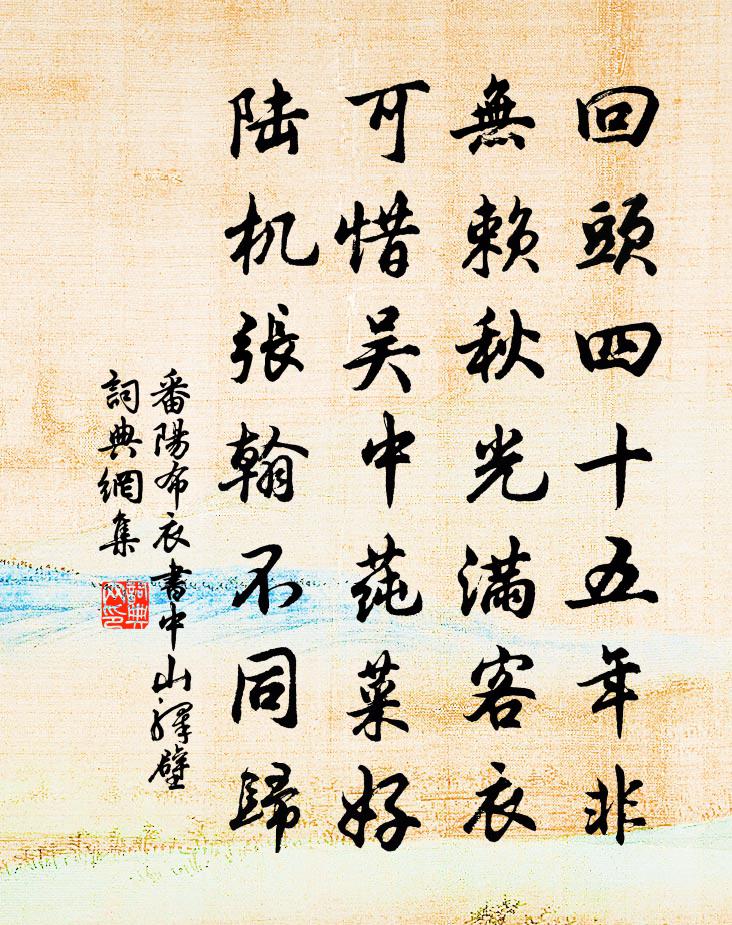 回頭四十五年非
無賴秋光滿客衣
可惜吴中莼菜好
陆机張翰不同歸
番陽布衣書中山驛壁
詞典網集